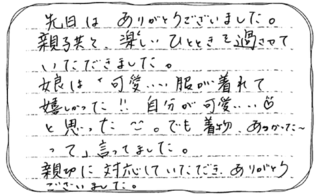 先日は ありがとうございました。
親子共々、楽しいひとときを過させて
いただきました。
娘は「可愛い... 服が着れて
嬉しかった!! 自分が可愛い...♡
と思った。でも着物、あつかった〜
って」言ってました。
親切に対応していただき、ありがとう
ございました。